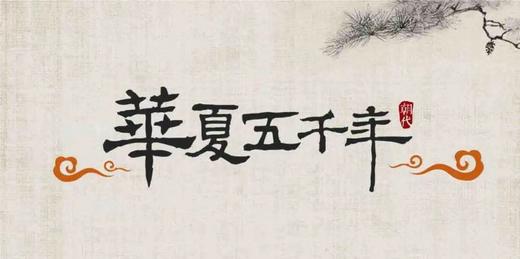 華夏五千年
朝代